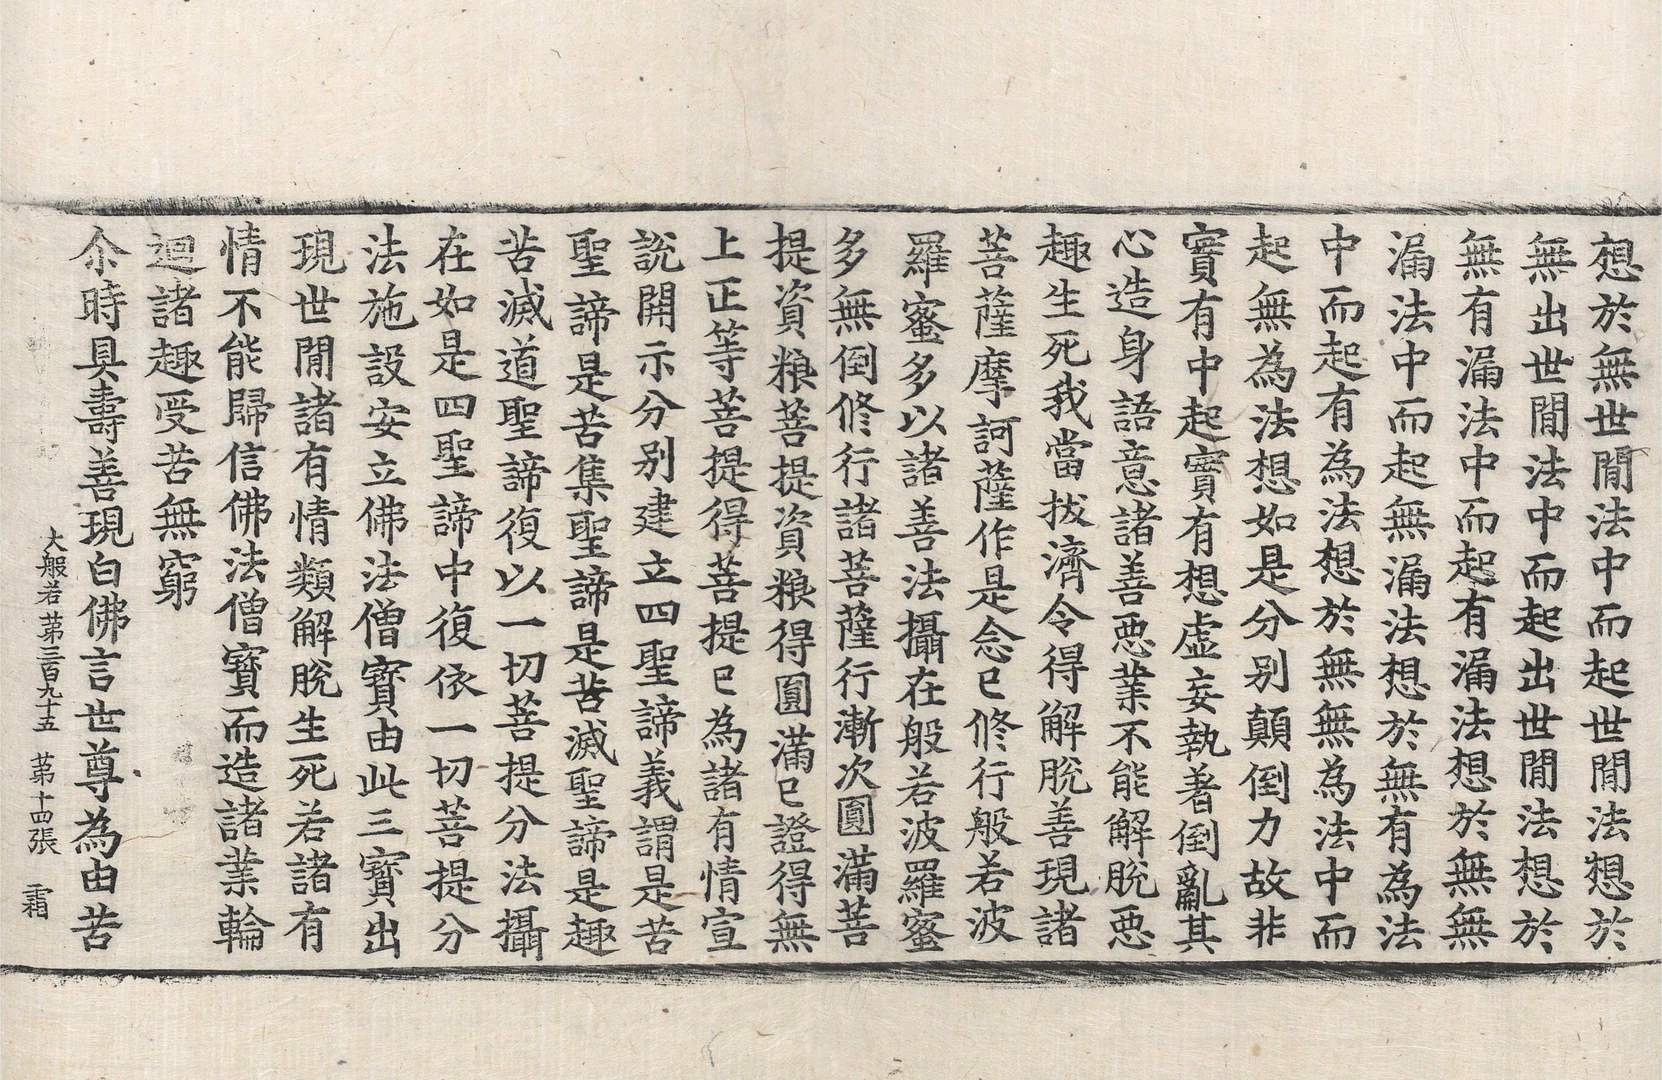 想於無世閒法中而起世閒法想於
無出世閒法中而起出世閒法想於
無有漏法中而起有漏法想於無無
漏法中而起無漏法想於無有為法
中而起有為法想於無無為法中而
起無為法想如是分别顛倒力故非
實有中起實有想虛妄執著倒亂其
心造身語意諸善惡業不能解脫惡
趣生死我當拔濟令得解脫善現諸
菩薩摩訶薩作是念已修行般若波
羅蜜多以諸善法攝在般若波羅蜜
多無倒修行諸菩薩行漸次圓滿菩
提資粮菩提資粮得圓滿已證得無
上正等菩提得菩提已為諸有情宣
說開示分别建立四聖諦義謂是苦
聖諦是苦集聖諦是苦滅聖諦是趣
苦滅道聖諦復以一切菩提分法攝
在如是四聖諦中復依一切菩提分
法施設安立佛法僧寶由此三寶出
現世閒諸有情類解脫生死若諸有
情不能歸信佛法僧寶而造諸業輪
迴諸趣受苦無窮
尒時具壽善現白佛言世尊為由苦
大般若第三百九十五　第十四張　霜